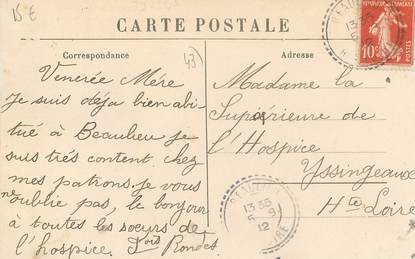 15 E
CARTE POSTALE
Correspondance
Adresse
43)
Venerée Mére
Je suis déja bien abi-
tué à Beaulieu je
suis trés content chez
mes patrons je vous
ne oublie pas, le bonjour
à toutes les soeurs de
l'hospice.
Madame la
Supérieure de
l'Hospice
Yssingeaux
Hte Loire
10
13 35
12